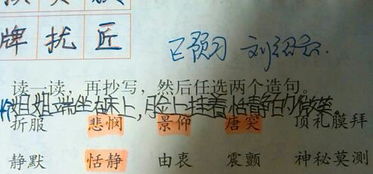 牌 扰 匠
已预习
读一读，再抄写，然后任选两个造句。
姐姐端坐在床上，脸上挂着恬静的微笑。
折服 悲悯 景仰 唐突 顶礼膜拜
静默 恬静 由衷 震颤 神秘莫测